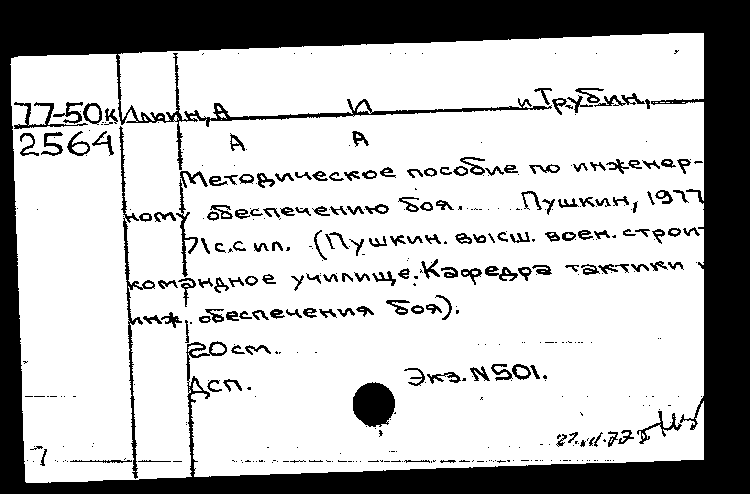 77-50к Илюин, А И и Трубин,
2564 А А
Методическое пособие по инженер-
ному обеспечению боя. Пушкин, 1977
71с.с ил. (Пушкин. высш. воен. строит
командное училище. Кафедра тактики и
инж. обеспечения боя).
20см.
Дсп. Экз. N501.
7